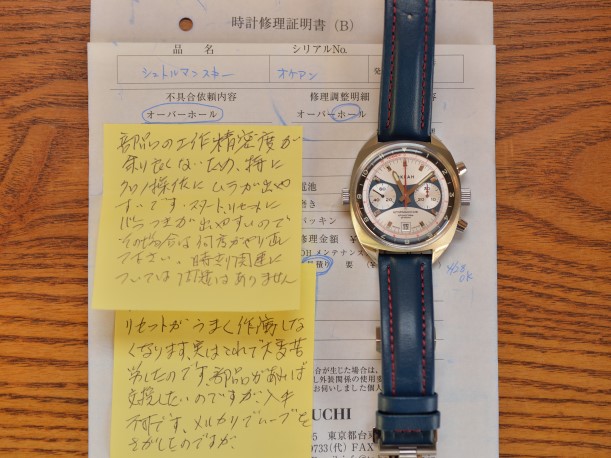 時計修理証明書（B）
品 名
シリアルNo.
シュトルマンスキー
オケアン
不具合依頼内容
修理調整明細
オーバーホール
オーバーホール
部品の工作精密度が
余りよくないため、特に
クロノ操作にムラが出や
すいです・スタート、リセットに
バラつきが出やすいので
その場合は何度かやり直
下さい。時刻関連に
ついては問題はありません
電池
磨き
パッキン
修理金額 ¥
OHメンテナンス
見積り 要 (¥
4/28
OK
リセットがうまく作動しなく
なります、実はこれで大変苦
労したのです、部品があれば
交換したいのですが、入手
不可です、メルカリでムーブを
さがしたのですが、
合が生じた場合は、
し外装関係の使用
UCHI
5 東京都台
9733(代) FAX